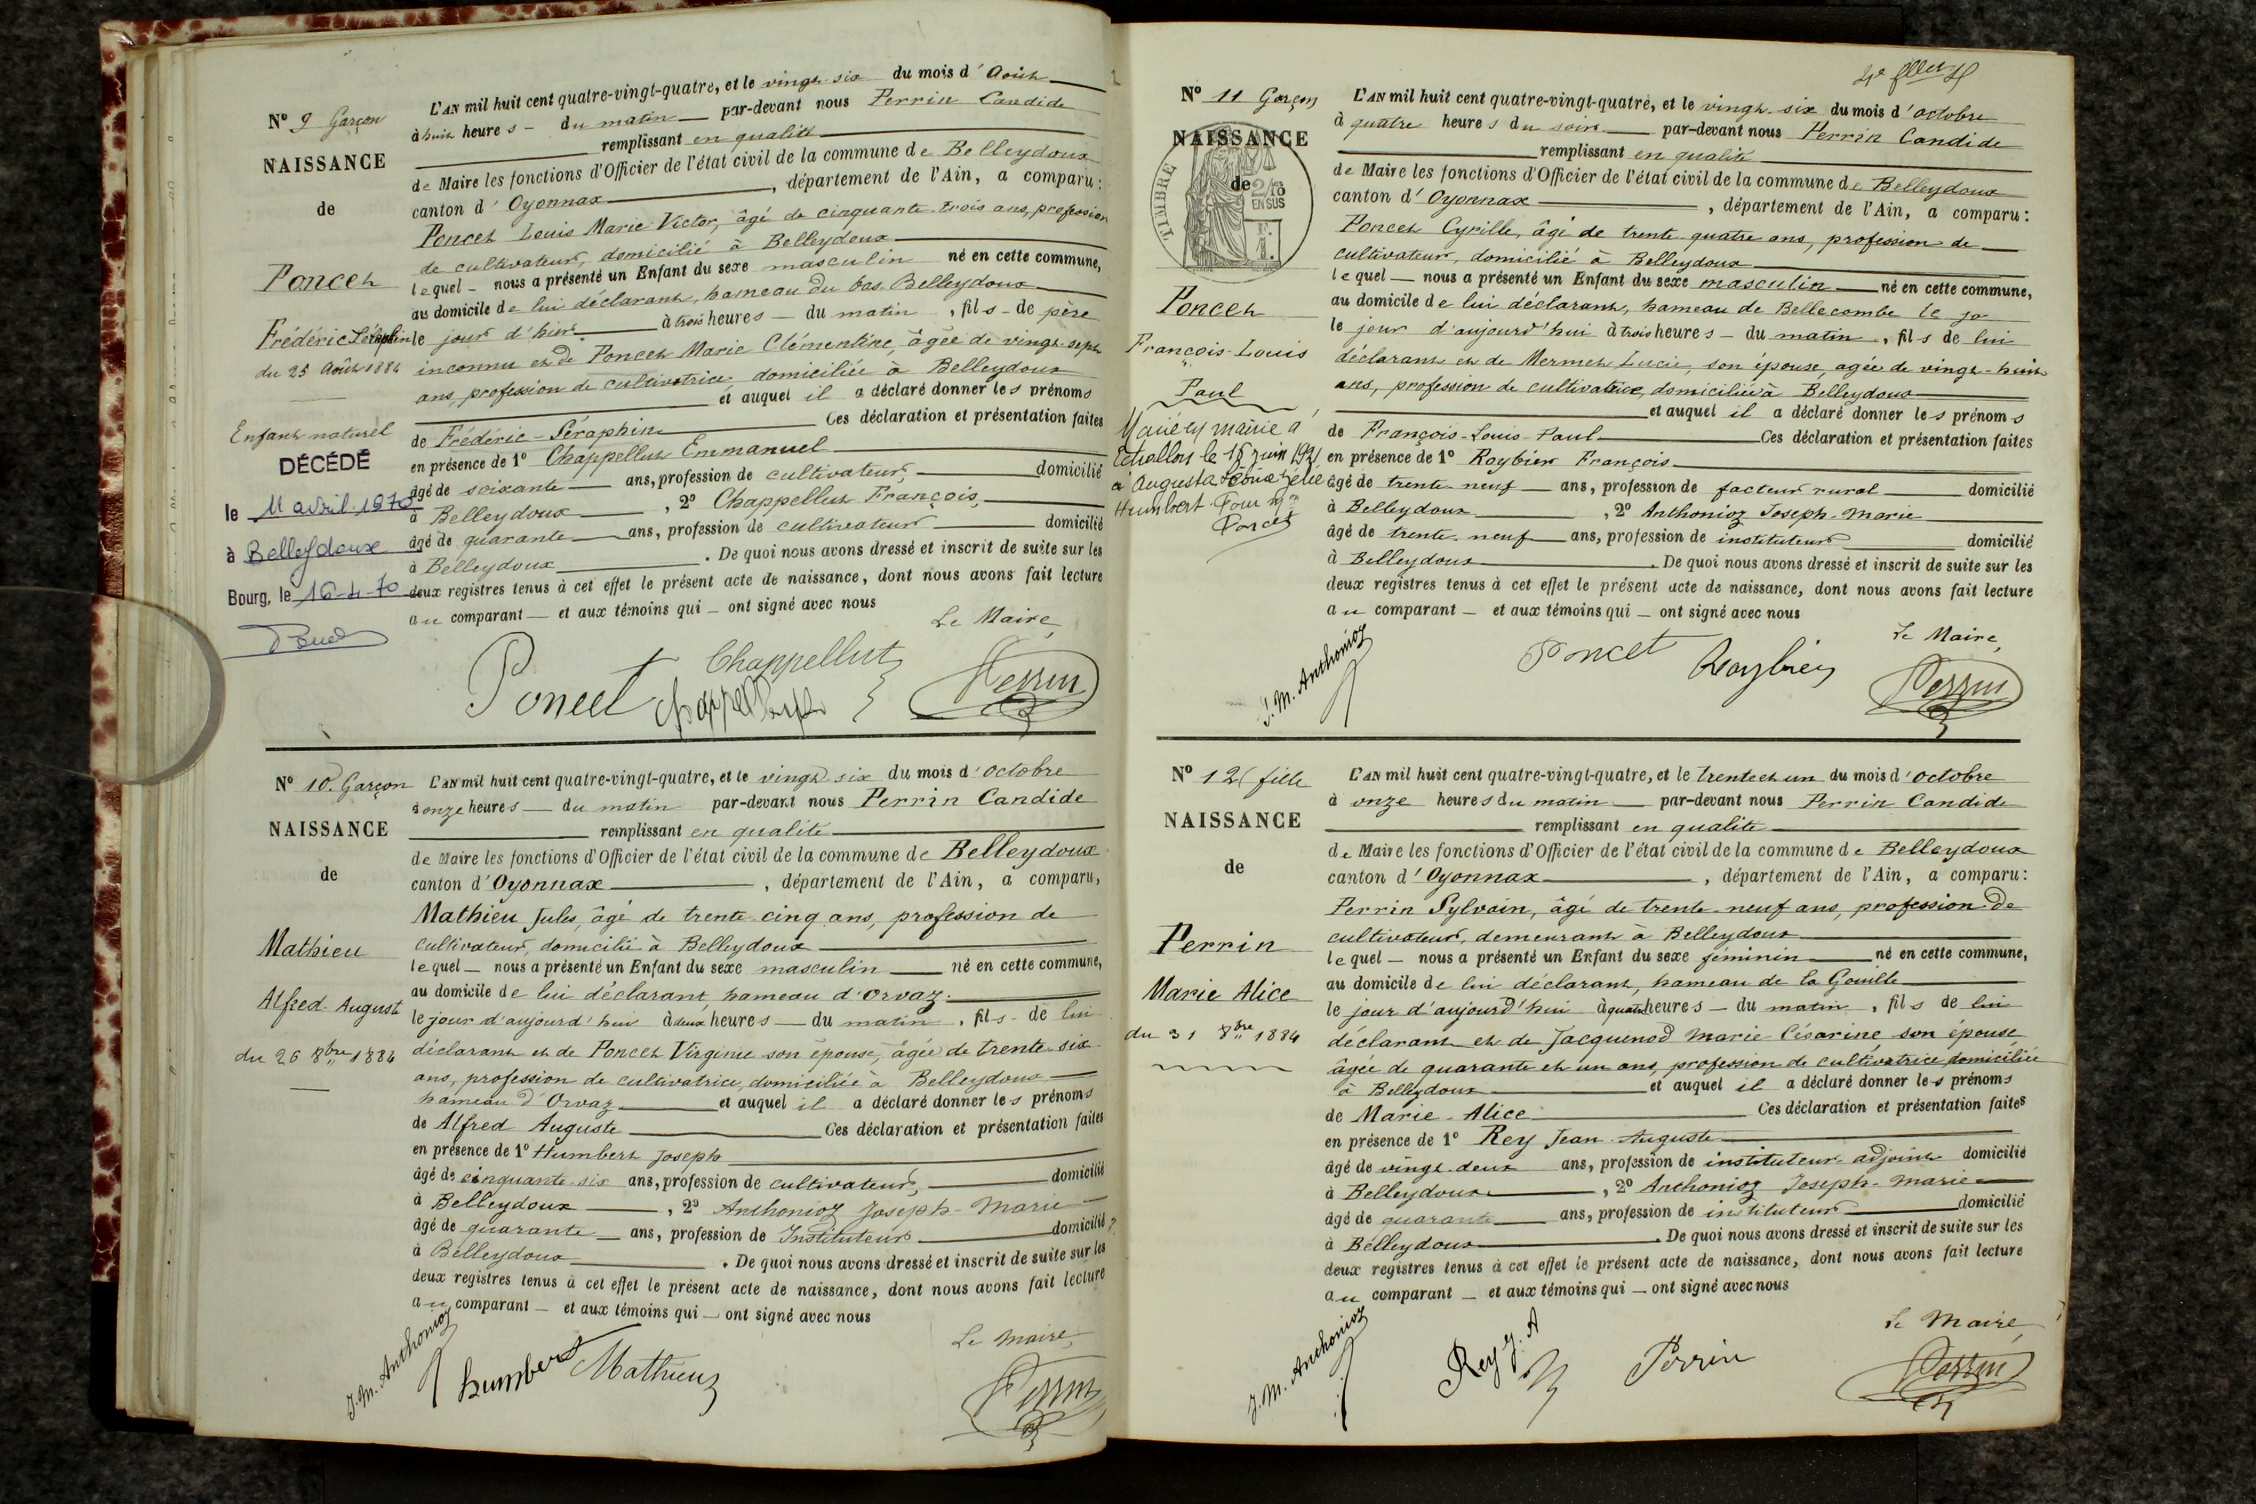 Nº 9 Garçon
NAISSANCE
de
Poncet
Frédéric Séraphin
du 25 Août 1884
Enfant naturel
DÉCÉDÉ
le 11 avril 1970
à Belleydoux
Bourg, le 16-4-70
L'AN mil huit cent quatre-vingt-quatre, et le vingt-six du mois d'Août
à huit heures du matin par-devant nous Perrin Candide
remplissant en qualité
de Maire les fonctions d'Officier de l'état civil de la commune de Belleydoux
canton d'Oyonnax, département de l'Ain, a comparu:
Poncet Louis Marie Victor, âgé de cinquante-trois ans, profession
de cultivateur, domicilié à Belleydoux
lequel nous a présenté un Enfant du sexe masculin né en cette commune,
au domicile de lui déclarant, hameau du bas Belleydoux
le jour d'hier à trois heures du matin, fils de père
inconnu et de Poncet Marie Clémentine, âgée de vingt-sept
ans, profession de cultivatrice, domiciliée à Belleydoux
et auquel il a déclaré donner les prénoms
de Frédéric-Séraphin Ces déclaration et présentation faites
en présence de 1º Chappellut Emmanuel
âgé de soixante ans, profession de cultivateur, domicilié
à Belleydoux, 2º Chappellut François,
âgé de quarante ans, profession de cultivateur domicilié
à Belleydoux. De quoi nous avons dressé et inscrit de suite sur les
deux registres tenus à cet effet le présent acte de naissance, dont nous avons fait lecture
au comparant et aux témoins qui ont signé avec nous
Le Maire,
Poncet Chappellut Perrin
Nº 10. Garçon
NAISSANCE
de
Mathieu
Alfred August
du 26 8bre 1884
L'AN mil huit cent quatre-vingt-quatre, et le vingt-six du mois d'octobre
à onze heures du matin par-devant nous Perrin Candide
remplissant en qualité
de Maire les fonctions d'Officier de l'état civil de la commune de Belleydoux
canton d'Oyonnax, département de l'Ain, a comparu,
Mathieu Jules, âgé de trente-cinq ans, profession de
cultivateur, domicilié à Belleydoux
lequel nous a présenté un Enfant du sexe masculin né en cette commune,
au domicile de lui déclarant, hameau d'Orvaz.
le jour d'aujourd'hui à deux heures du matin, fils de lui
déclarant et de Poncet Virginie son épouse, âgée de trente-six
ans, profession de cultivatrice, domiciliée à Belleydoux
hameau d'Orvaz et auquel il a déclaré donner les prénoms
de Alfred Auguste Ces déclaration et présentation faites
en présence de 1º Humbert Joseph
âgé de cinquante-six ans, profession de cultivateur, domicilié
à Belleydoux, 2º Anthonioz Joseph-Marie
âgé de quarante ans, profession de Instituteur domicilié
à Belleydoux. De quoi nous avons dressé et inscrit de suite sur les
deux registres tenus à cet effet le présent acte de naissance, dont nous avons fait lecture
au comparant et aux témoins qui ont signé avec nous
Le Maire,
J.M. Anthonioz humbert Mathieu Perrin
Nº 11 Garçon
NAISSANCE
de
TIMBRE
2/10 EN SUS
Poncet
François-Louis
Paul
Marié en mairie à
Echallon le 15 juin 1921
à Augusta
Humbert
Poncet
L'AN mil huit cent quatre-vingt-quatre, et le vingt-six du mois d'octobre
à quatre heures du soir par-devant nous Perrin Candide
remplissant en qualité
de Maire les fonctions d'Officier de l'état civil de la commune de Belleydoux
canton d'Oyonnax, département de l'Ain, a comparu:
Poncet Cyrille, âgé de trente-quatre ans, profession de
cultivateur, domicilié à Belleydoux
lequel nous a présenté un Enfant du sexe masculin né en cette commune,
au domicile de lui déclarant, hameau de Bellecombe le jo
le jour d'aujourd'hui à trois heures du matin, fils de lui
déclarant et de Mermet Lucie, son épouse, agée de vingt-huit
ans, profession de cultivatrice, domiciliée à Belleydoux
et auquel il a déclaré donner les prénoms
de François-Louis-Paul Ces déclaration et présentation faites
en présence de 1º Roybier François
âgé de trente-neuf ans, profession de facteur rural domicilié
à Belleydoux, 2º Anthonioz Joseph-Marie
âgé de trente-neuf ans, profession de instituteur domicilié
à Belleydoux. De quoi nous avons dressé et inscrit de suite sur les
deux registres tenus à cet effet le présent acte de naissance, dont nous avons fait lecture
au comparant et aux témoins qui ont signé avec nous
Le Maire,
J.M. Anthonioz Poncet Roybier Perrin
Nº 12 fille
NAISSANCE
de
Perrin
Marie Alice
du 31 8bre 1884
L'AN mil huit cent quatre-vingt-quatre, et le trente et un du mois d'octobre
à onze heures du matin par-devant nous Perrin Candide
remplissant en qualité
de Maire les fonctions d'Officier de l'état civil de la commune de Belleydoux
canton d'Oyonnax, département de l'Ain, a comparu:
Perrin Sylvain, âgé de trente-neuf ans, profession de
cultivateur, demeurant à Belleydoux
lequel nous a présenté un Enfant du sexe féminin né en cette commune,
au domicile de lui déclarant, hameau de la Gouille
le jour d'aujourd'hui à quatre heures du matin, fils de lui
déclarant et de Jacquenod Marie Césarine, son épouse,
âgée de quarante et un ans, profession de cultivatrice, domiciliée
à Belleydoux et auquel il a déclaré donner les prénoms
de Marie-Alice Ces déclaration et présentation faites
en présence de 1º Rey Jean-Auguste
âgé de vingt-deux ans, profession de instituteur-adjoint domicilié
à Belleydoux, 2º Anthonioz Joseph-Marie
âgé de quarante ans, profession de instituteur domicilié
à Belleydoux. De quoi nous avons dressé et inscrit de suite sur les
deux registres tenus à cet effet le présent acte de naissance, dont nous avons fait lecture
au comparant et aux témoins qui ont signé avec nous
Le Maire,
J.M. Anthonioz Rey J. A Perrin Perrin